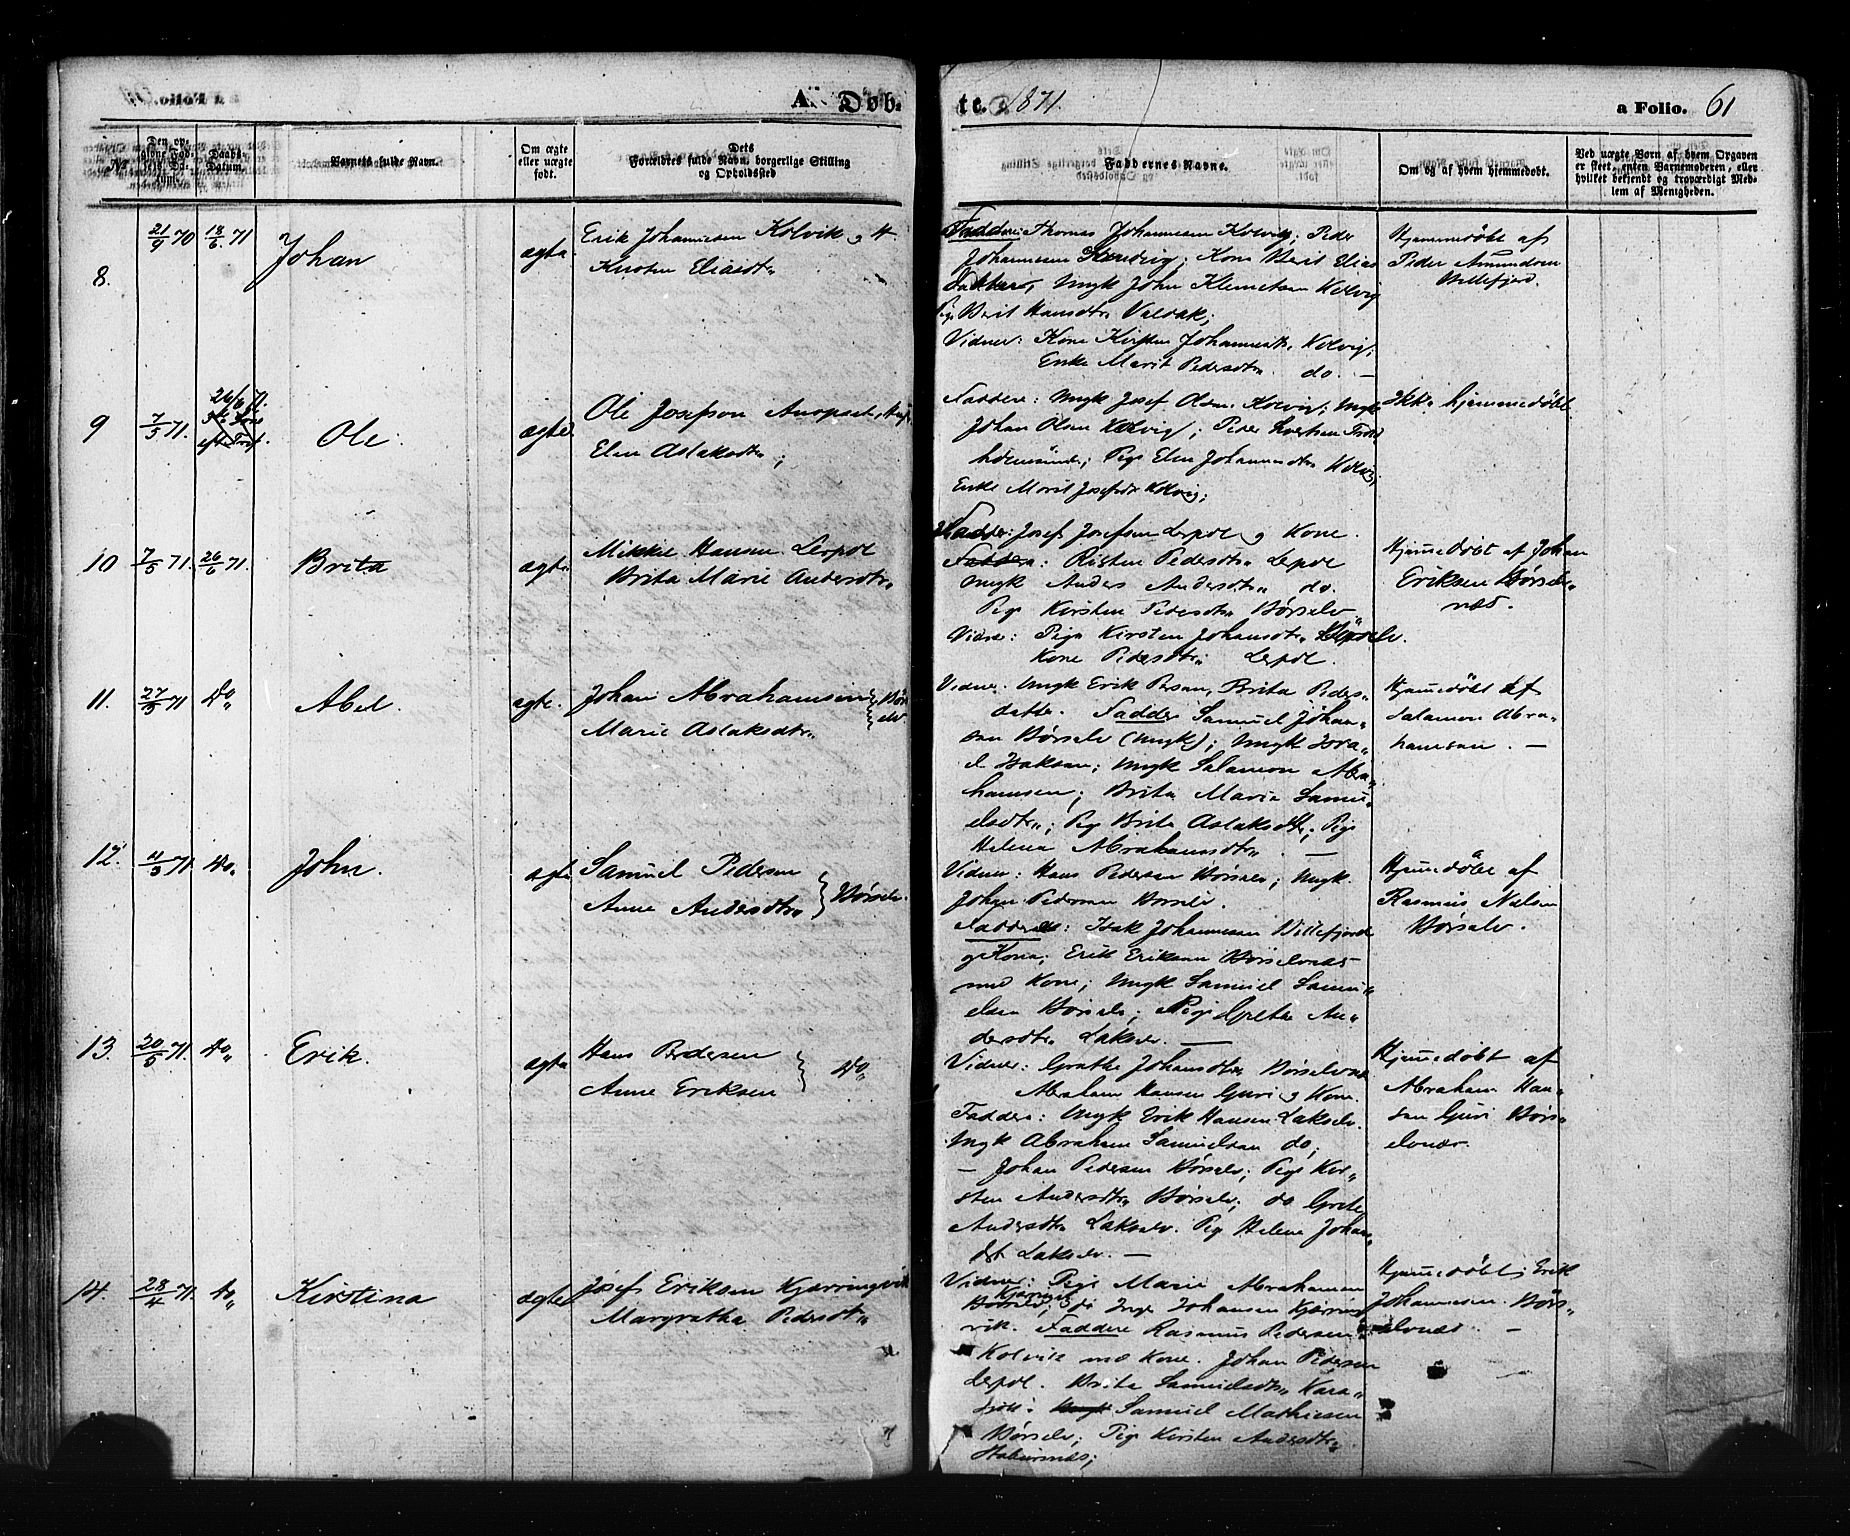 A. Døb-
te. 1871.
a Folio. 61
No
Den opgivne Fødsels Datum.
Daabs Datum.
Barnets fulde Navn.
Om ægte
eller uægte
født.
Dets
Forældres fulde Navn, borgerlige Stilling
og Opholdssted
Faddernes Navne.
Om og af hvem hjemmedøbt.
Ved uægte Børn af hvem Opgaven
er skeet, enten Barnemoderen, eller
hvilket bekjendt og troværdigt Med-
lem af Menigheden.
8.
21/9 70
18/6 71
Johan
ægte
Erik Johannesen Kolvik og H.
Kirsten Eliasdtr
Faddere: Thomas Johannesen Kolvig; Peder
Johannesen; Kone Berit Elias
Ungk John Klemetsen Kolvig
Pige Berit Hansdtr Valdak;
Vidner: Kone Kirsten Johannesdtr. Kolvig;
Enke Marit Pedersdtr. do. —
Hjemmedøbt af
Peder Amundsen
Billefjord.
9
7/5 71.
26/6 71.
Ole.
ægte
Ole Josefson
Elen Aslaksdtr;
Faddere: Ungk Josef Olsen Kolvig; Ungk
Johan Olsen Kolvig; Peder
Pige Elen Johannesdtr Kolvig;
Enke Marit Josefsdtr Kolvig;
Ikke hjemmedøbt
10
7/5 71.
26/6 71.
Brita
ægte
Mikkel Hansen Lerpol
Brita Marie Andersdtr
Faddere: Josef Josefsen Lerpol og Kone.
Faddere: Risten Pedersdtr Lerpol
Ungk Anders Andersdtr do.
Pige Kirsten Pedersdtr Børselv
Vidner: Pige Kirsten Johansdtr
Kone Pedersdtr; Lerpol.
Hjemmedøbt af Johan
Eriksen Børselv-
næs.
11.
27/5 71
Do
Abel
ægte.
Johan Abrahamsen } Børs
Marie Aslaksdtr } elv
Vidner. Ungk Erik Persen, Brita Peders-
datter. Faddere Samuel Johan-
sen Børselv (Ungk); Ungk Isra-
el Isaksen; Ungk Salamon Abra-
hamsen; Brita Maria Samu-
elsdtr; Pige Brita Aslaksdtr; Pige
Helena Abrahamsdtr. —
Hjemmedøbt af
Salamon Abra-
hamsen. —
12.
71.
Do.
John.
ægte
Samuel Pedersen
Anne Andersdtr } Børselv.
Vidner: Hans Pedersen Børselv; Ungk.
Johan Pedersen Børselv.
Faddere: Isak Johannesen Billefjord
og Kone; Erik Eriksen Børselvnæs
med Kone; Ungk Samuel Samu-
elsen Børselv; Pige Grete An-
dersdtr Lakselv. —
Hjemmedøbt af
Rasmus Nielsen
Børselv.
13.
20/5 71.
Do
Erik.
ægte
Hans Pedersen
Anne Eriksen } Do
Vidner: Grethe Johansdtr Børselvnæs
Abraham Hansen Guri og Kone.
Faddere: Ungk Erik Hansen Lakselv.
Ungk Abraham Samuelsen do;
— Johan Pedersen Børselv; Pige Kir-
sten Andersdtr Børselv; do Grete
Andersdtr Lakselv. Pige Helene Johan-
sdt Lakselv. —
Hjemmedøbt af
Abraham Han-
sen Guri Børs-
elvnæs.
14.
28/4 71.
Do
Kirstina
ægte
Josef Eriksen Kjerringvik
Margretha Pedersdtr
Vidner: Pige Marie Abrahamsen
Børselv, do Inge Johansen Kjerring
vik. Faddere Rasmus Pedersen
Kolvik med Kone. Johan Pedersen
Lerpol. Brita Samuelsdtr Kara-
sjok. Samuel Mathiesen
Børselv; Pige Kirsten Andersdtr.
Hjemmedøbt; Erik
Johannesen Børs-
elvnæs. —